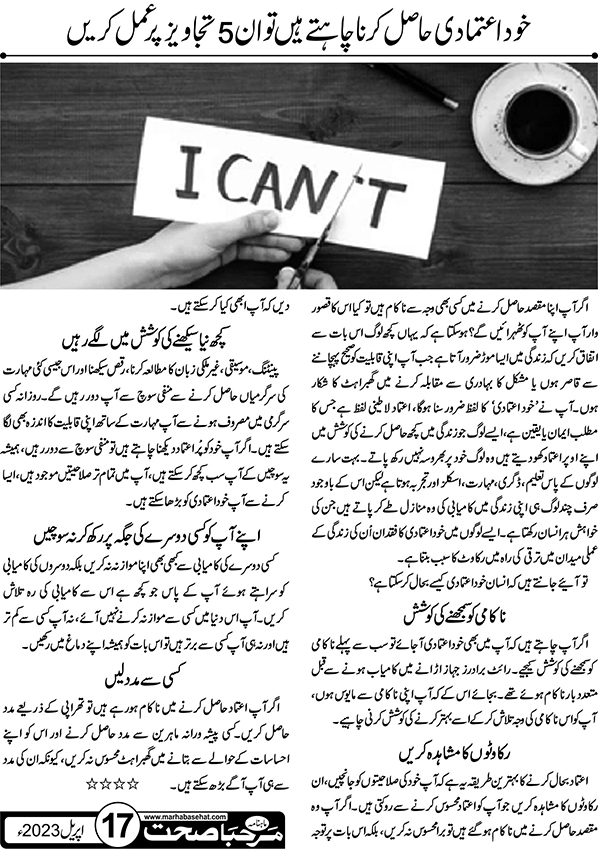 خود اعتمادی حاصل کرنا چاہتے ہیں تو ان 5 تجاویز پر عمل کریں
I CAN'T
اگر آپ اپنا مقصد حاصل کرنے میں کسی بھی وجہ سے ناکام ہیں تو کیا اس کا قصور
وار آپ اپنے آپ کو ٹھہرائیں گے؟ ہوسکتا ہے کہ یہاں کچھ لوگ اس بات سے
اتفاق کریں کہ زندگی میں ایسا موڑ ضرور آتا ہے جب آپ اپنی قابلیت کو صحیح پہچاننے
سے قاصر ہوں یا مشکل کا بہادری سے مقابلہ کرنے میں گھبراہٹ کا شکار
ہوں۔ آپ نے 'خود اعتمادی' کا لفظ ضرور سنا ہوگا، اعتماد لاطینی لفظ ہے جس کا
مطلب ایمان یا یقین ہے، ایسے لوگ جو زندگی میں کچھ حاصل کرنے کی کوشش میں
اپنے اوپر اعتماد کھو دیتے ہیں وہ لوگ خود پر بھروسہ نہیں رکھ پاتے۔ بہت سارے
لوگوں کے پاس تعلیم، ڈگری، مہارت، اسکلز اور تجربہ ہوتا ہے لیکن اس کے باوجود
صرف چند لوگ ہی اپنی زندگی میں کامیابی کی وہ منازل طے کر پاتے ہیں جن کی
خواہش ہر انسان رکھتا ہے۔ ایسے لوگوں میں خود اعتمادی کا فقدان اُن کی زندگی کے
عملی میدان میں ترقی کی راہ میں رکاوٹ کا سبب بنتا ہے۔
تو آیئے جانتے ہیں کہ انسان خود اعتمادی کیسے بحال کرسکتا ہے؟
ناکامی کو سمجھنے کی کوشش
اگر آپ چاہتے ہیں کہ آپ میں بھی خود اعتمادی آجائے تو سب سے پہلے ناکامی
کو سمجھنے کی کوشش کیجیے۔ رائٹ برادرز جہاز اڑانے میں کامیاب ہونے سے قبل
متعدد بار ناکام ہوئے تھے۔ بجائے اس کے کہ آپ اپنی ناکامی سے مایوس ہوں،
آپ کو اس ناکامی کی وجہ تلاش کرکے اسے بہتر کرنے کی کوشش کرنی چاہیے۔
رکاوٹوں کا مشاہدہ کریں
اعتماد بحال کرنے کا بہترین طریقہ یہ ہے کہ آپ خود کی صلاحیتوں کو جانچیں، ان
رکاوٹوں کا مشاہدہ کریں جو آپ کو اعتماد محسوس کرنے سے روکتی ہیں۔ اگر آپ وہ
حاصل کرنے میں ناکام ہوگئے ہیں تو برا محسوس نہ کریں، بلکہ اس بات پر توجہ
دیں کہ آپ ابھی کیا کر سکتے ہیں۔
کچھ نیا سیکھنے کی کوشش میں لگے رہیں
پینٹنگ، موسیقی، غیر ملکی زبان کا مطالعہ کرنا، رقص سیکھنا اور اس جیسی کئی مہارت
کی سرگرمیاں حاصل کرنے سے منفی سوچ سے آپ دور رہیں گے۔ روزانہ کسی
سرگرمی میں مصروف ہونے سے آپ مہارت کے ساتھ اپنی قابلیت کا اندزہ بھی لگا
سکتے ہیں۔ اگر آپ خود کو پُر اعتماد دیکھنا چاہتے ہیں تو منفی سوچ سے دور رہیں، ہمیشہ
یہ سوچیں کے آپ سب کچھ کر سکتے ہیں، آپ میں تمام تر صلاحیتیں موجود ہیں، ایسا
کرنے سے آپ خود اعتمادی کو بڑھا سکتے ہیں۔
اپنے آپ کو کسی دوسرے کی جگہ پر رکھ کر نہ سوچیں
کسی دوسرے کی کامیابی سے کبھی بھی اپنا موازنہ نہ کریں بلکہ دوسروں کی کامیابی
کو سراہتے ہوئے آپ کے پاس جو کچھ ہے اس سے کامیابی کی رہ تلاش
کریں۔ آپ اس دنیا میں کسی سے موازنہ کرنے نہیں آئے، نہ آپ کسی سے کم تر
ہیں اور نہ ہی آپ کسی سے برتر ہیں تو اس بات کو ہمیشہ اپنے دماغ میں رکھیں۔
کسی سے مدد لیں
اگر آپ اعتماد حاصل کرنے میں ناکام ہورہے ہیں تو تھراپی کے ذریعے مدد
حاصل کریں۔ کسی پیشہ ورانہ ماہرین سے مدد حاصل کرنے اور اس کو اپنے
احساسات کے حوالے سے بتانے میں گھبراہٹ محسوس نہ کریں، کیونکہ ان کی مدد
سے ہی آپ آگے بڑھ سکتے ہیں۔
☆☆☆☆
www.marhabasehat.com
ماہنامہ
مرحبا صحت
17
اپریل 2023ء